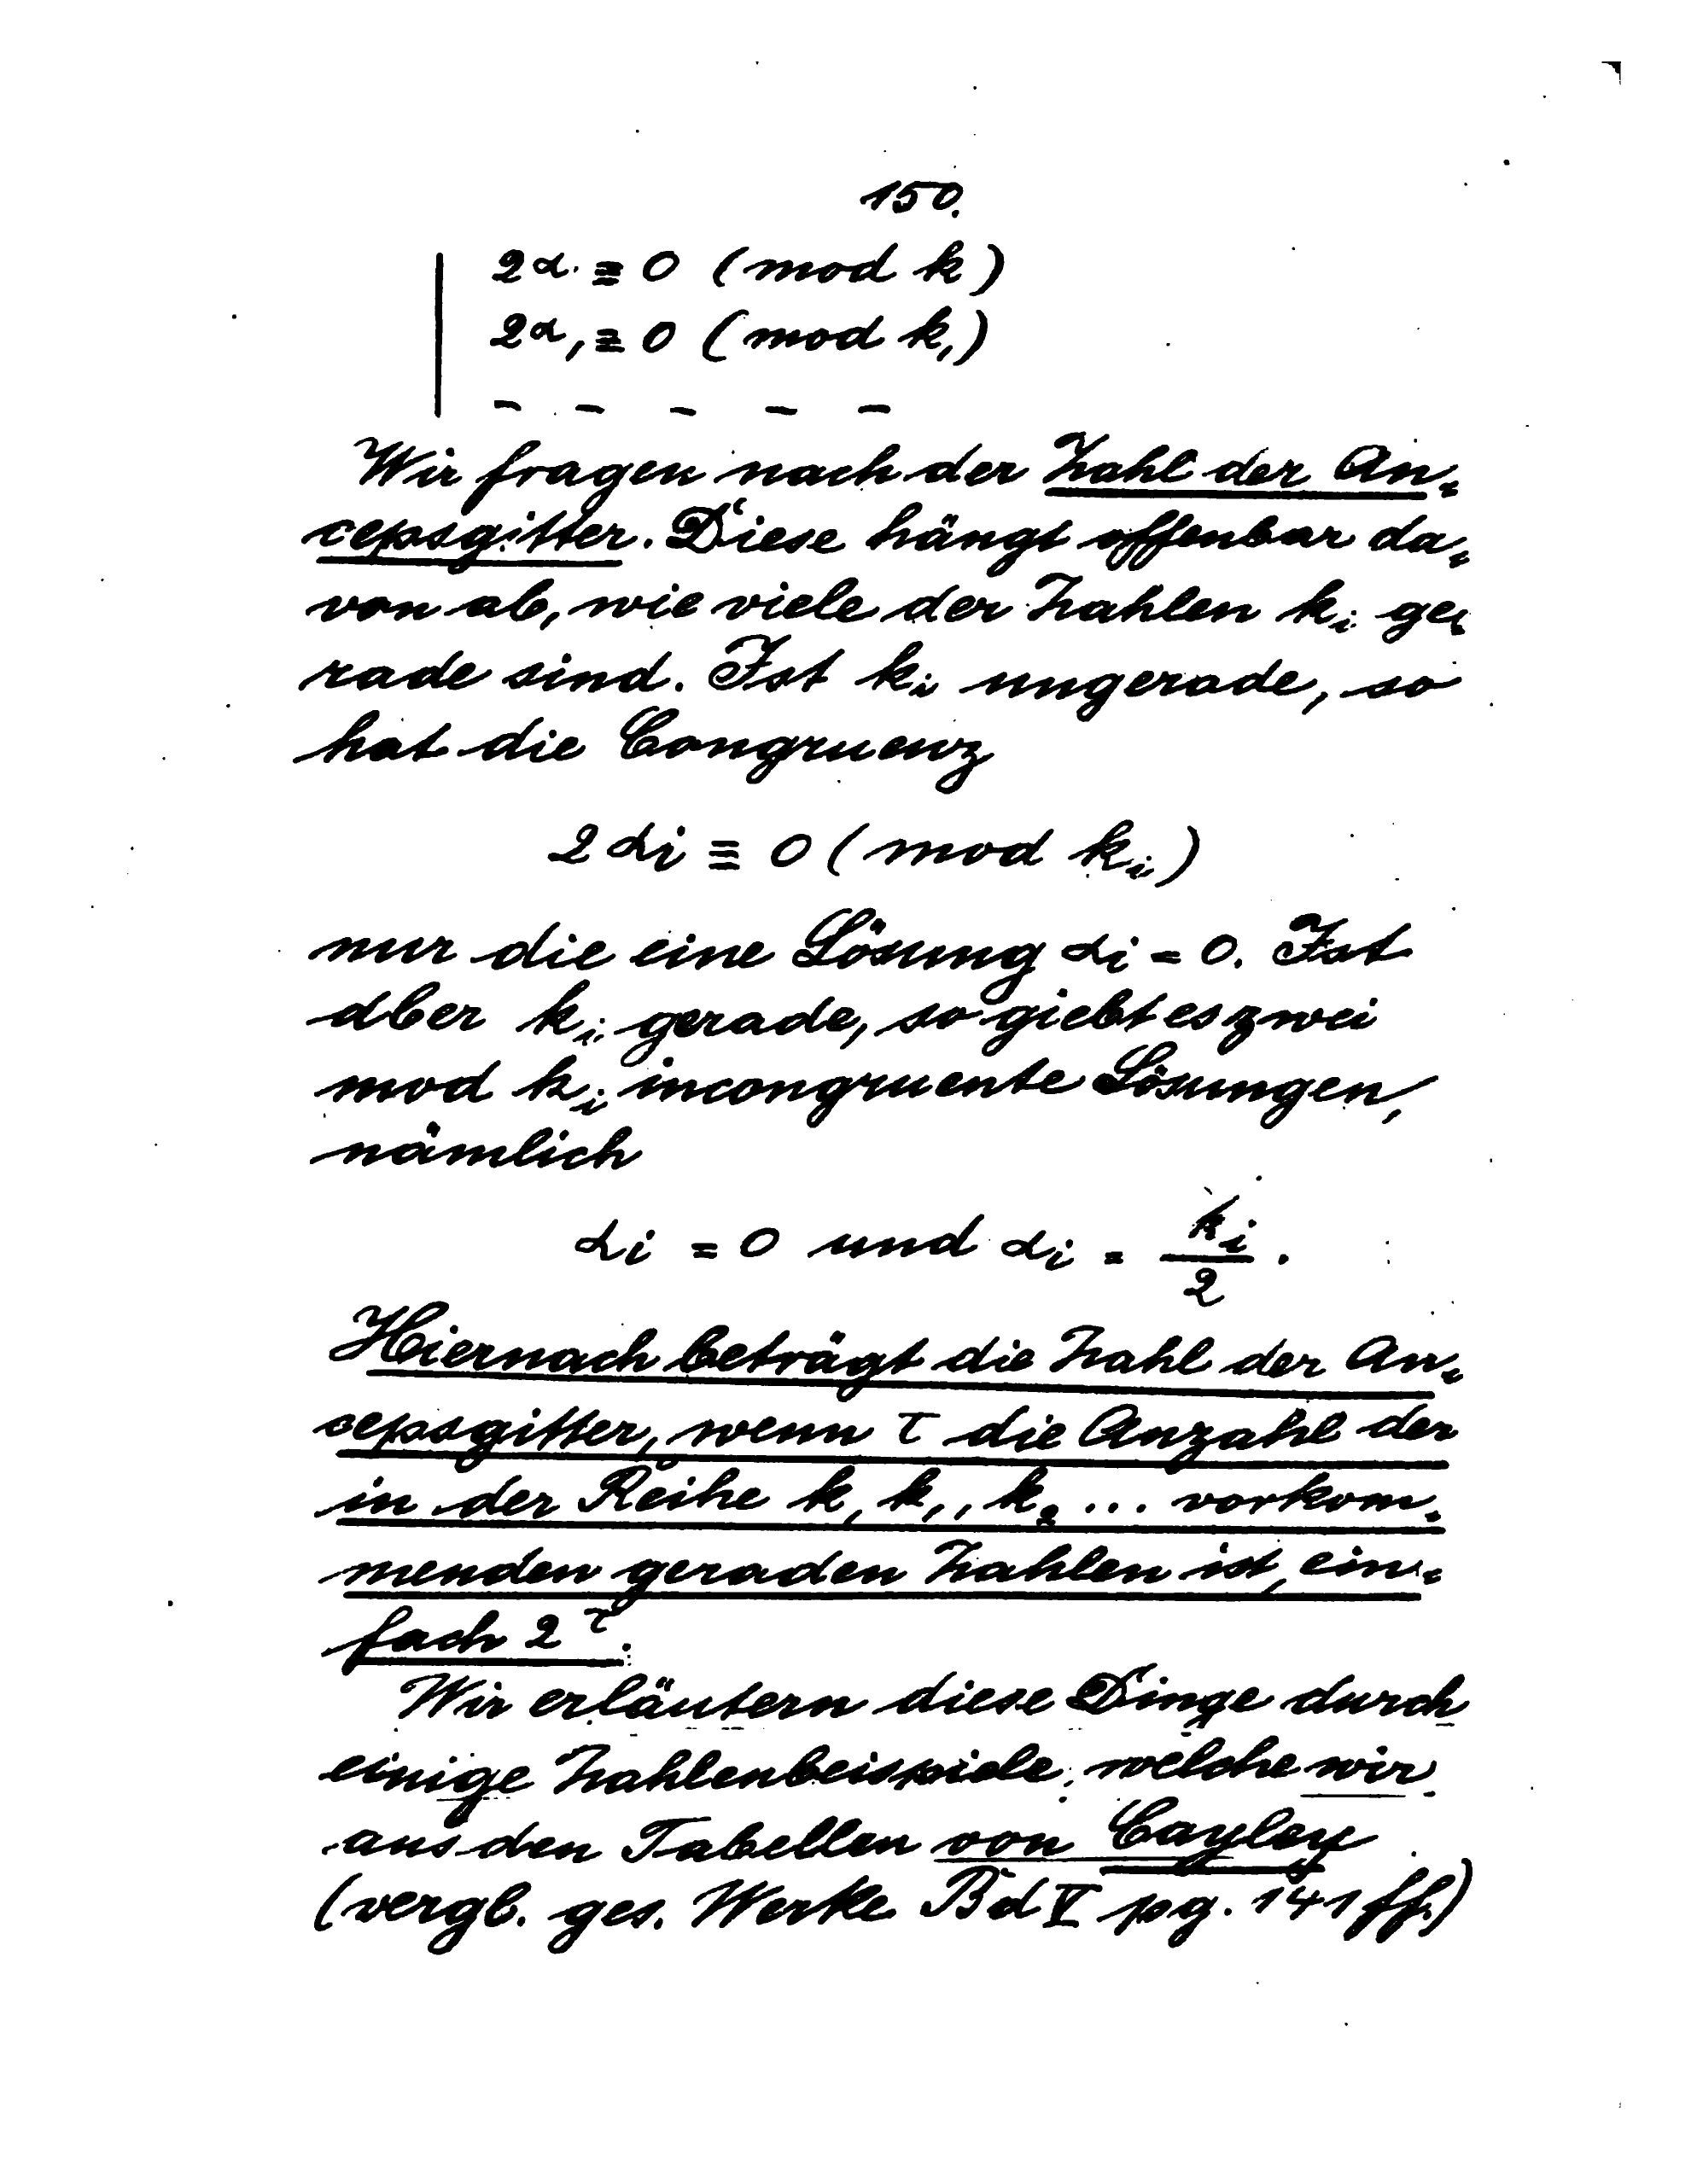 150.
2α ≡ 0 (mod k)
2α₁ ≡ 0 (mod k₁)
– – – – –
Wir fragen nach der Zahl der An-
cepsgitter. Diese hängt offenbar da-
von ab, wie viele der Zahlen kᵢ ge-
rade sind. Ist kᵢ ungerade, so
hat die Congruenz
2αᵢ ≡ 0 (mod kᵢ)
nur die eine Lösung αᵢ = 0. Ist
aber kᵢ gerade, so giebt es zwei
mod kᵢ incongruente Lösungen,
nämlich
αᵢ = 0 und αᵢ = kᵢ/2.
Hiernach beträgt die Zahl der An-
cepsgitter, wenn τ die Anzahl der
in der Reihe k, k₁, k₂ ... vorkom-
menden geraden Zahlen ist, ein-
fach 2^τ.
Wir erläutern diese Dinge durch
einige Zahlenbeispiele, welche wir
aus den Tabellen von Cayley
(vergl. ges. Werke Bd V pg. 141 ff.)